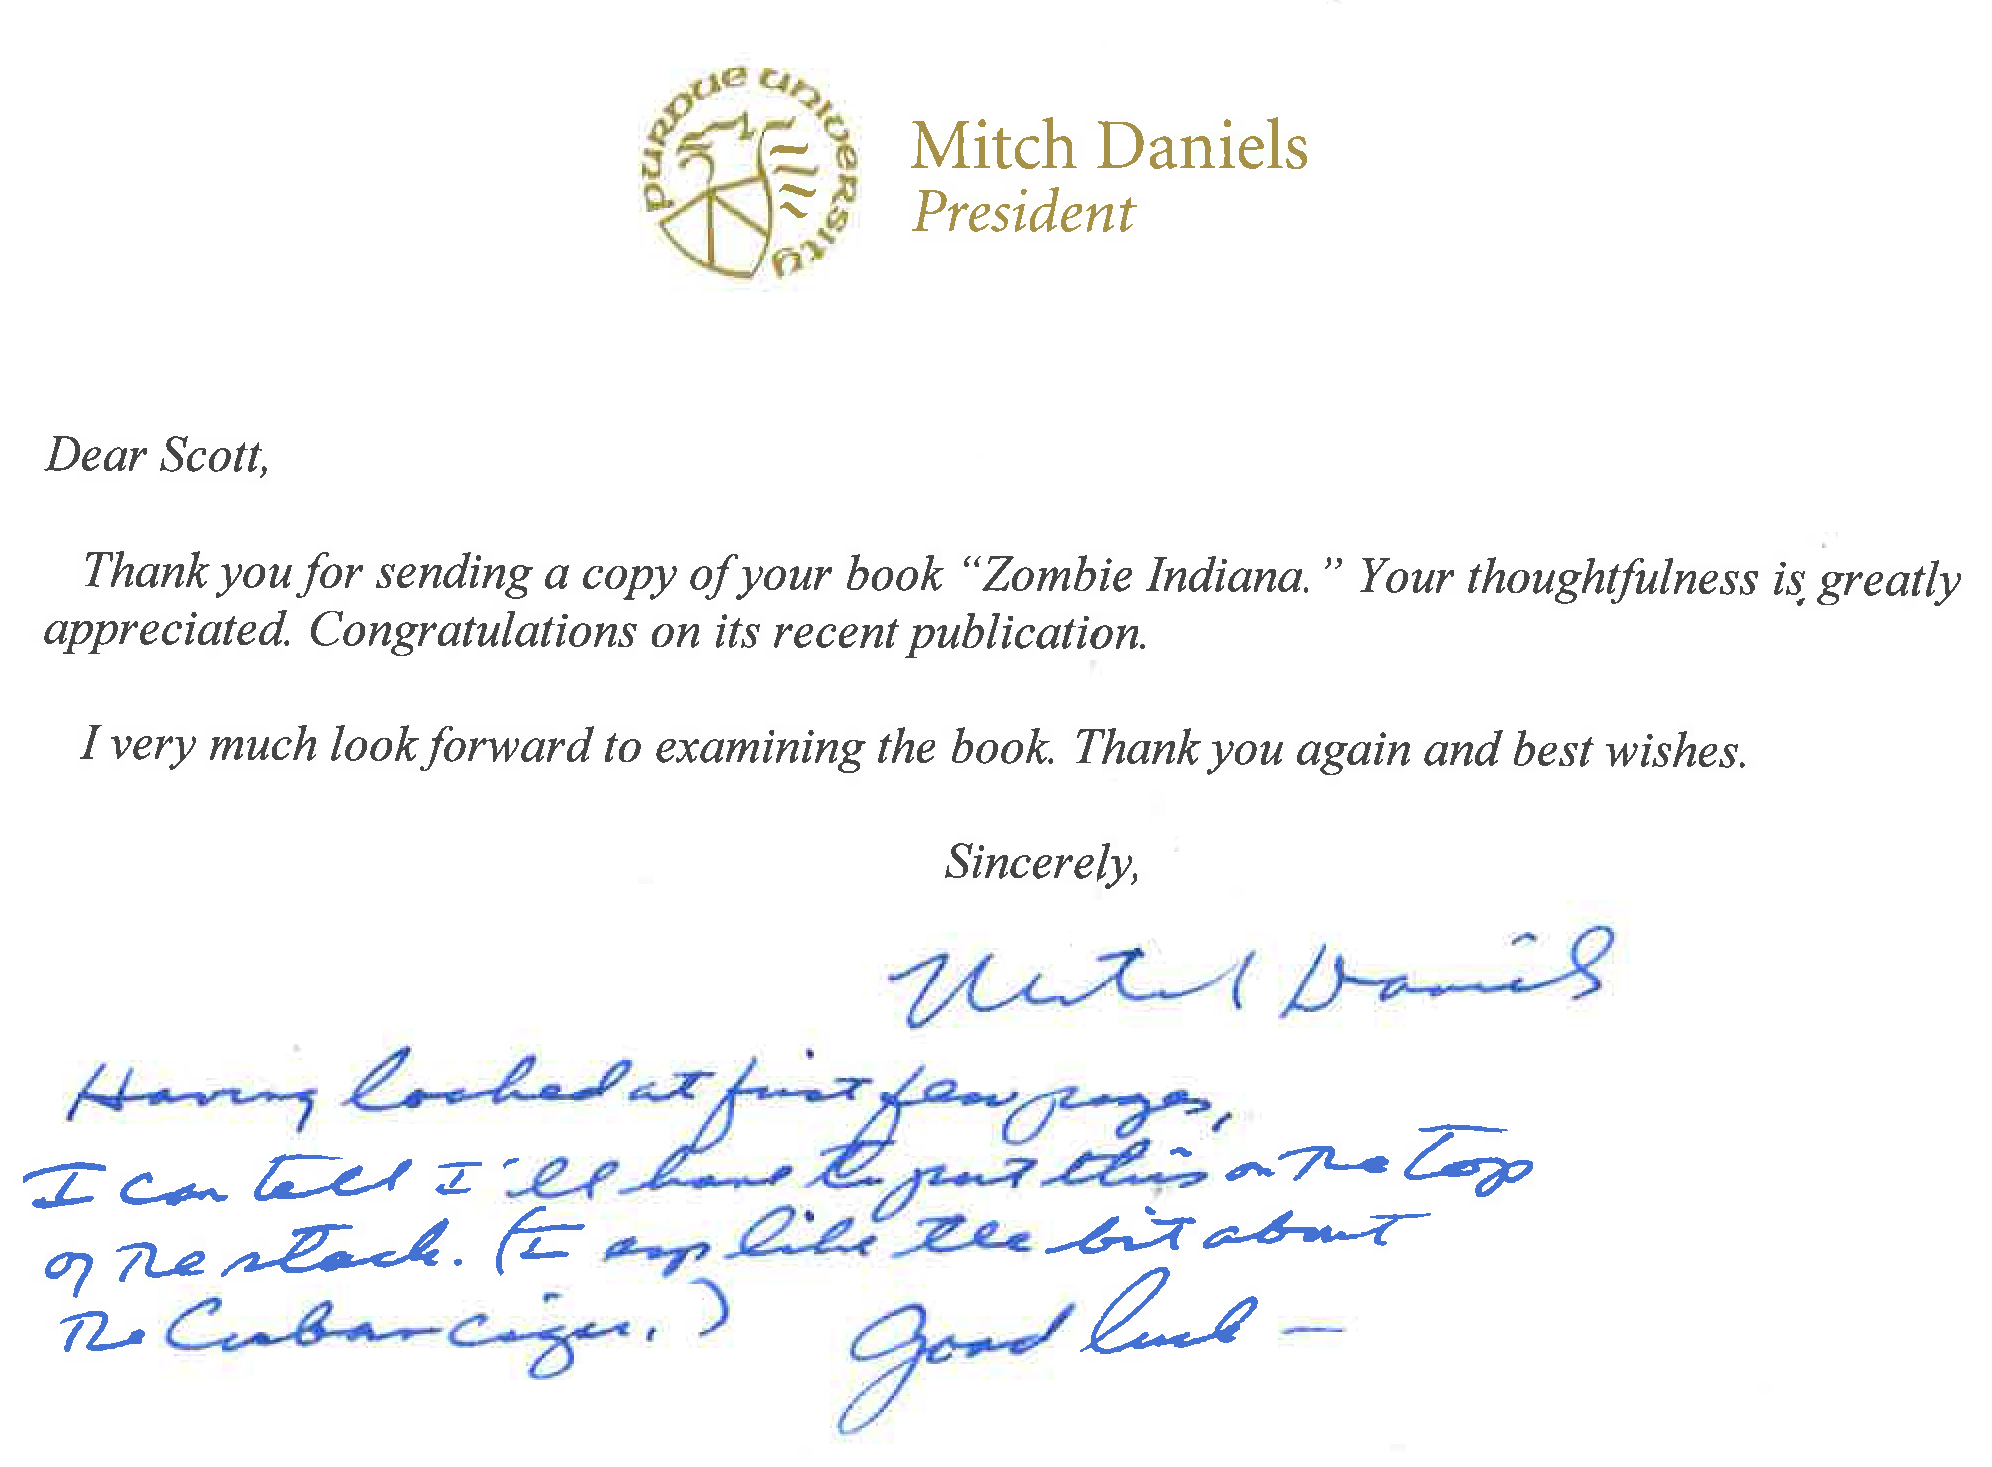 PURDUE UNIVERSITY
Mitch Daniels
President
Dear Scott,
Thank you for sending a copy of your book “Zombie Indiana.” Your thoughtfulness is greatly
appreciated. Congratulations on its recent publication.
I very much look forward to examining the book. Thank you again and best wishes.
Sincerely,
Mitch Daniels
Having looked at first few pages,
I can tell I'll have to put this on the top
of the stack. (I esp like the bit about
the Cuban cigar.) Good luck —